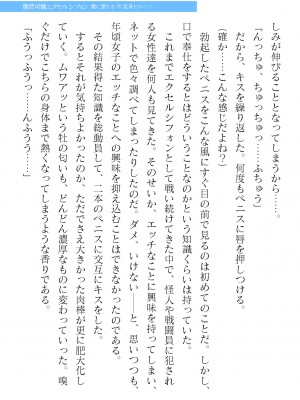 しみが伸びてなくなってしまうから――。
「んっちゅ、ちゅっちゅっ……ふちゅう」
だから、キスを繰り返した。何度もペニスに唇を押しつける。
（確か……こんな感じだよね？）
勃起したペニスをこんな風にすぐ目の前で見るのは初めてのことだ。しかし、
口で奉仕をするとはどういうことなのかという知識くらいは持っていた。
これまでエクセルシフォンとして戦い続けてきた中で、怪人や戦闘員に犯され
る女性達を何人も見てきた。そのせいか、エッチなことに興味を持ってしまい、
ネットで色々調べてしまったりしたのだ。ダメ、いけない――と、思いつつも、
年頃女子のエッチなことへの興味を抑え込むことはできなかったのである。
その結果得た知識を総動員して、二本のペニスに交互にキスをした。
するとそれが気持ちよかったのか、ただでさえ大きかった肉棒が更に肥大化し
ていく。ムワァッという牡の匂いも、どんどん濃厚なものに変わっていった。嗅
ぐだけでこちらの身体まで熱くなってしまうような香りである。
「ふうっふうっ……んふうう……」